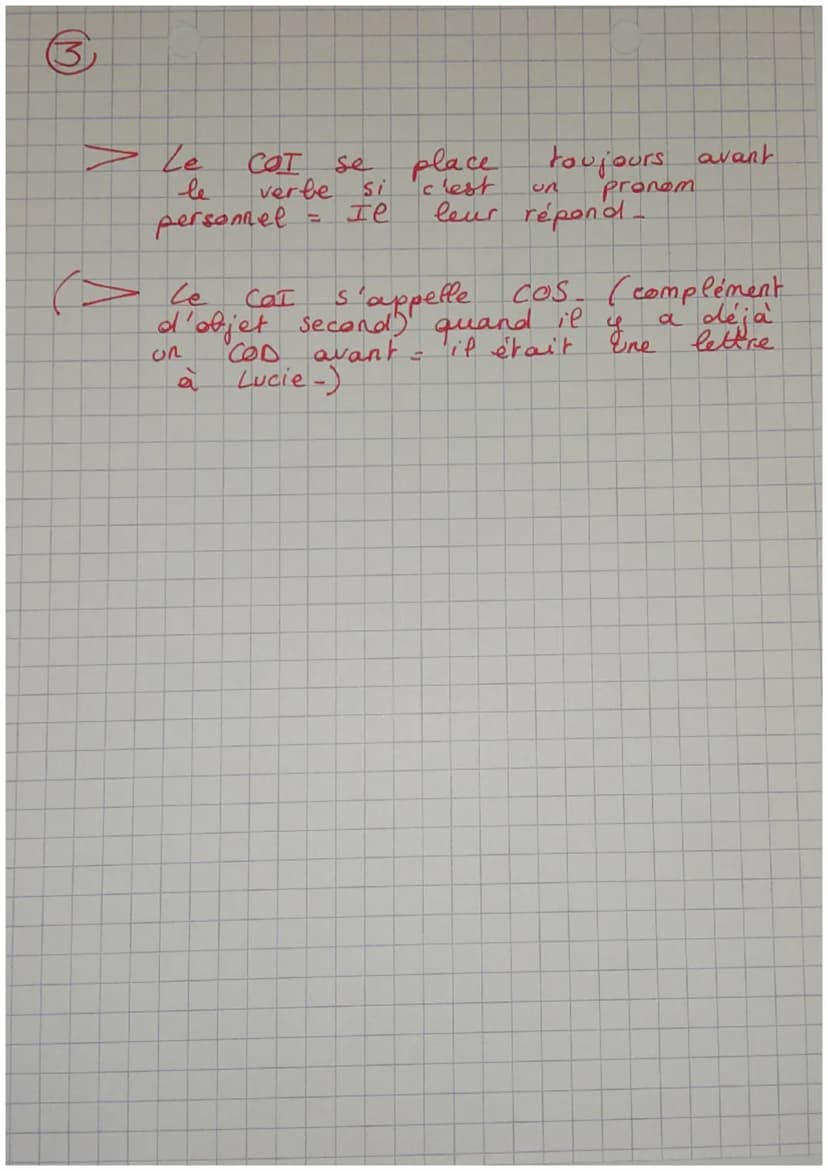 3
> Le COI se place toujours avant
le verbe si c'est un pronom
personnel = Il leur répond.
(> Le COI s'appelle COS. (complément
d'objet second) quand il y a déjà
un COD avant = il était une lettre
à Lucie.)